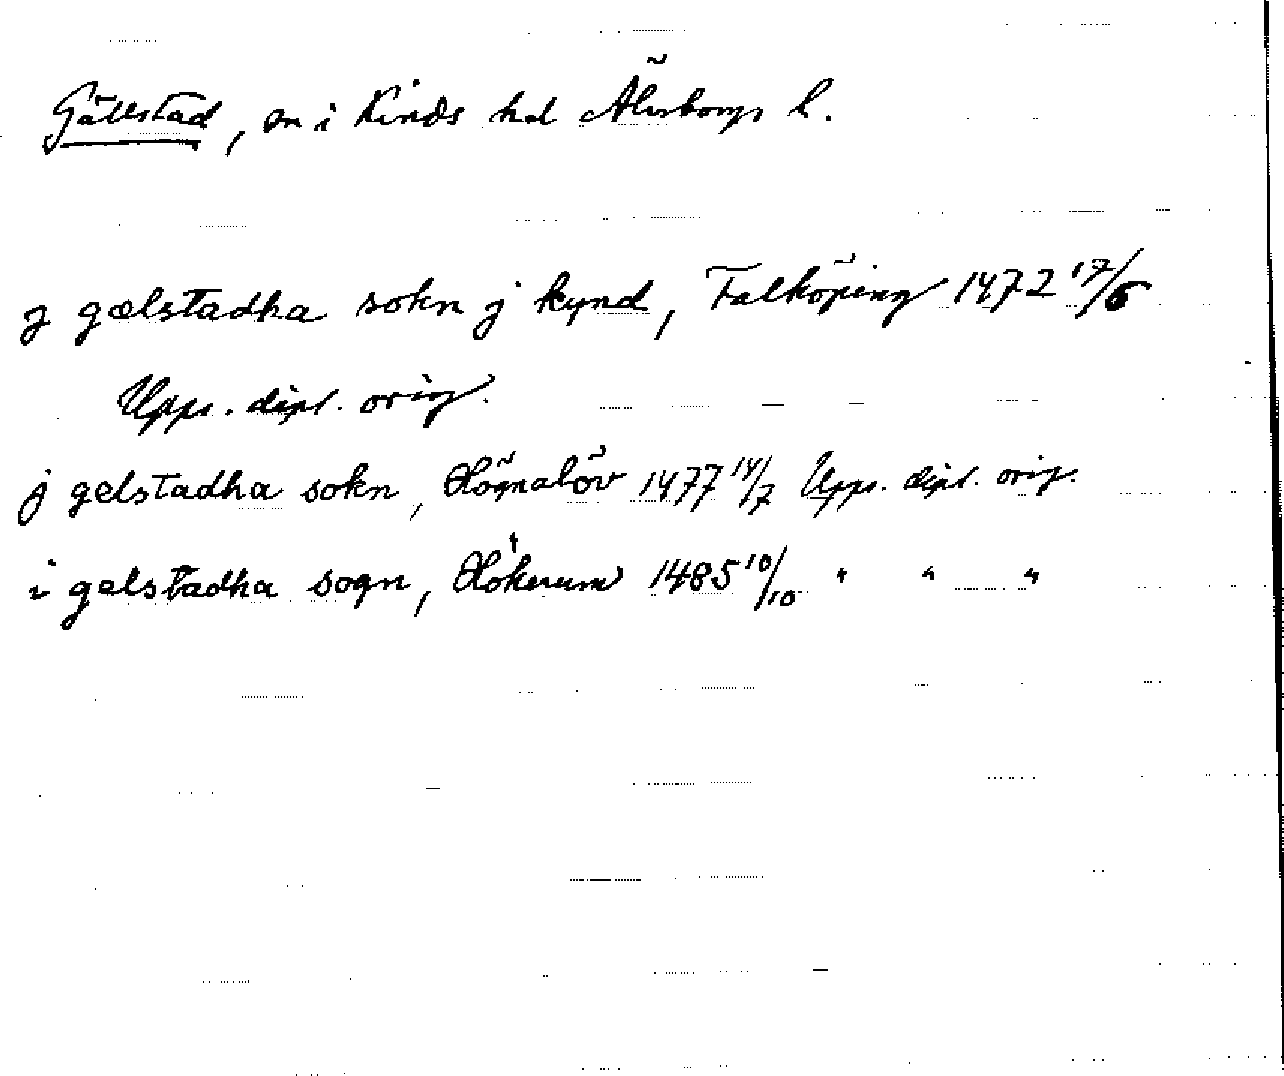 Gällstad, sn i Kinds hd Älvsborgs l.
j gælstadha sokn j kynd, Falköping 1472 17/6
Upps. dipl. orig.
j gelstadha sokn, Högnalöv 1477 14/7 Upps. dipl. orig.
i gelstadha sogn, Hökerum 1485 10/10 " " "